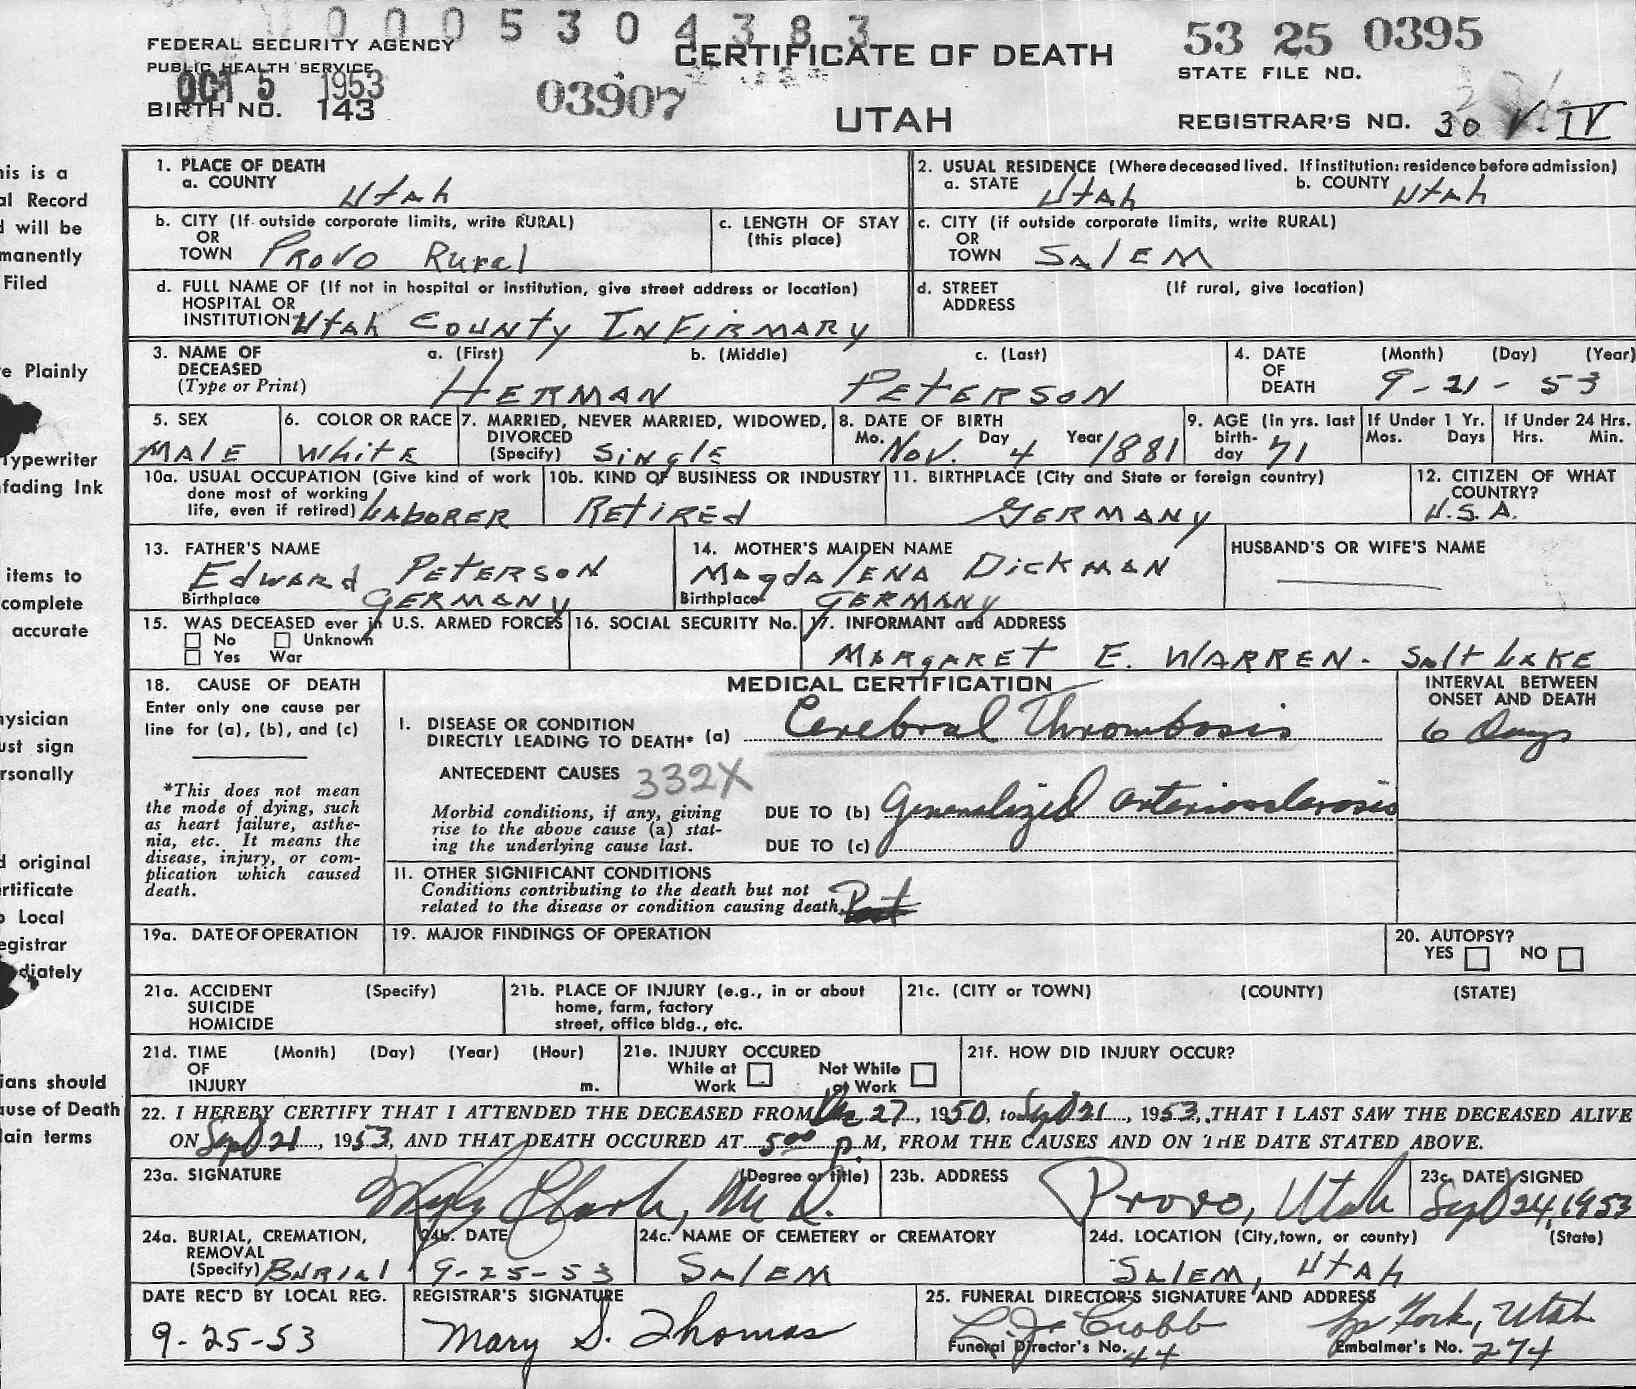 0 0 0 5 3 0 4 3 8 3
FEDERAL SECURITY AGENCY
PUBLIC HEALTH SERVICE
OCT 5 1953
BIRTH NO. 143
03907
CERTIFICATE OF DEATH
UTAH
53 25 0395
STATE FILE NO.
REGISTRAR'S NO. 30 V. IV
his is a
al Record
d will be
manently
Filed
e Plainly
Typewriter
fading Ink
items to
complete
accurate
hysician
ust sign
rsonally
d original
rtificate
o Local
egistrar
diately
ians should
ause of Death
lain terms
1. PLACE OF DEATH
a. COUNTY Utah
b. CITY (If outside corporate limits, write RURAL)
OR
TOWN Provo Rural
c. LENGTH OF STAY
(this place)
d. FULL NAME OF (If not in hospital or institution, give street address or location)
HOSPITAL OR
INSTITUTION Utah County Infirmary
2. USUAL RESIDENCE (Where deceased lived. If institution: residence before admission)
a. STATE Utah b. COUNTY Utah
c. CITY (if outside corporate limits, write RURAL)
OR
TOWN Salem
d. STREET (If rural, give location)
ADDRESS
3. NAME OF a. (First) b. (Middle) c. (Last)
DECEASED
(Type or Print) HERMAN PETERSON
4. DATE (Month) (Day) (Year)
OF
DEATH 9-21-53
5. SEX
MALE
6. COLOR OR RACE
White
7. MARRIED, NEVER MARRIED, WIDOWED,
DIVORCED
(Specify) Single
8. DATE OF BIRTH
Mo. Day Year
Nov. 4 1881
9. AGE (in yrs. last
birth-
day 71
If Under 1 Yr.
Mos. Days
If Under 24 Hrs.
Hrs. Min.
10a. USUAL OCCUPATION (Give kind of work
done most of working
life, even if retired) LABORER
10b. KIND OF BUSINESS OR INDUSTRY
Retired
11. BIRTHPLACE (City and State or foreign country)
GERMANY
12. CITIZEN OF WHAT
COUNTRY?
U.S.A.
13. FATHER'S NAME
Edward Peterson
Birthplace GERMANY
14. MOTHER'S MAIDEN NAME
Magdalena Dickman
Birthplace GERMANY
HUSBAND'S OR WIFE'S NAME
15. WAS DECEASED ever in U.S. ARMED FORCES
No Unknown
Yes War
16. SOCIAL SECURITY No.
17. INFORMANT and ADDRESS
MARGARET E. WARREN - Salt Lake
18. CAUSE OF DEATH
Enter only one cause per
line for (a), (b), and (c)
*This does not mean
the mode of dying, such
as heart failure, asthe-
nia, etc. It means the
disease, injury, or com-
plication which caused
death.
MEDICAL CERTIFICATION
I. DISEASE OR CONDITION
DIRECTLY LEADING TO DEATH* (a) Cerebral Thrombosis
ANTECEDENT CAUSES 332X
Morbid conditions, if any, giving
rise to the above cause (a) stat-
ing the underlying cause last.
DUE TO (b) Generalized arteriosclerosis
DUE TO (c)
INTERVAL BETWEEN
ONSET AND DEATH
6 Days
II. OTHER SIGNIFICANT CONDITIONS
Conditions contributing to the death but not
related to the disease or condition causing death.
19a. DATE OF OPERATION
19. MAJOR FINDINGS OF OPERATION
20. AUTOPSY?
YES NO
21a. ACCIDENT (Specify)
SUICIDE
HOMICIDE
21b. PLACE OF INJURY (e.g., in or about
home, farm, factory
street, office bldg., etc.
21c. (CITY or TOWN) (COUNTY) (STATE)
21d. TIME (Month) (Day) (Year) (Hour)
OF
INJURY m.
21e. INJURY OCCURED
While at Not While
Work at Work
21f. HOW DID INJURY OCCUR?
22. I HEREBY CERTIFY THAT I ATTENDED THE DECEASED FROM 27, 1950, to Sept 21, 1953, THAT I LAST SAW THE DECEASED ALIVE
ON Sept 21, 1953, AND THAT DEATH OCCURED AT 5:00 p.M, FROM THE CAUSES AND ON THE DATE STATED ABOVE.
23a. SIGNATURE (Degree or title)
Clark, M.D.
23b. ADDRESS
Provo, Utah
23c. DATE SIGNED
Sept 24, 1953
24a. BURIAL, CREMATION,
REMOVAL
(Specify) Burial
24b. DATE
9-25-53
24c. NAME OF CEMETERY or CREMATORY
SALEM
24d. LOCATION (City, town, or county) (State)
SALEM, Utah
DATE REC'D BY LOCAL REG.
9-25-53
REGISTRAR'S SIGNATURE
Mary S. Thomas
25. FUNERAL DIRECTOR'S SIGNATURE AND ADDRESS
Sp Fork, Utah
Funeral Director's No. 44
Embalmer's No. 274